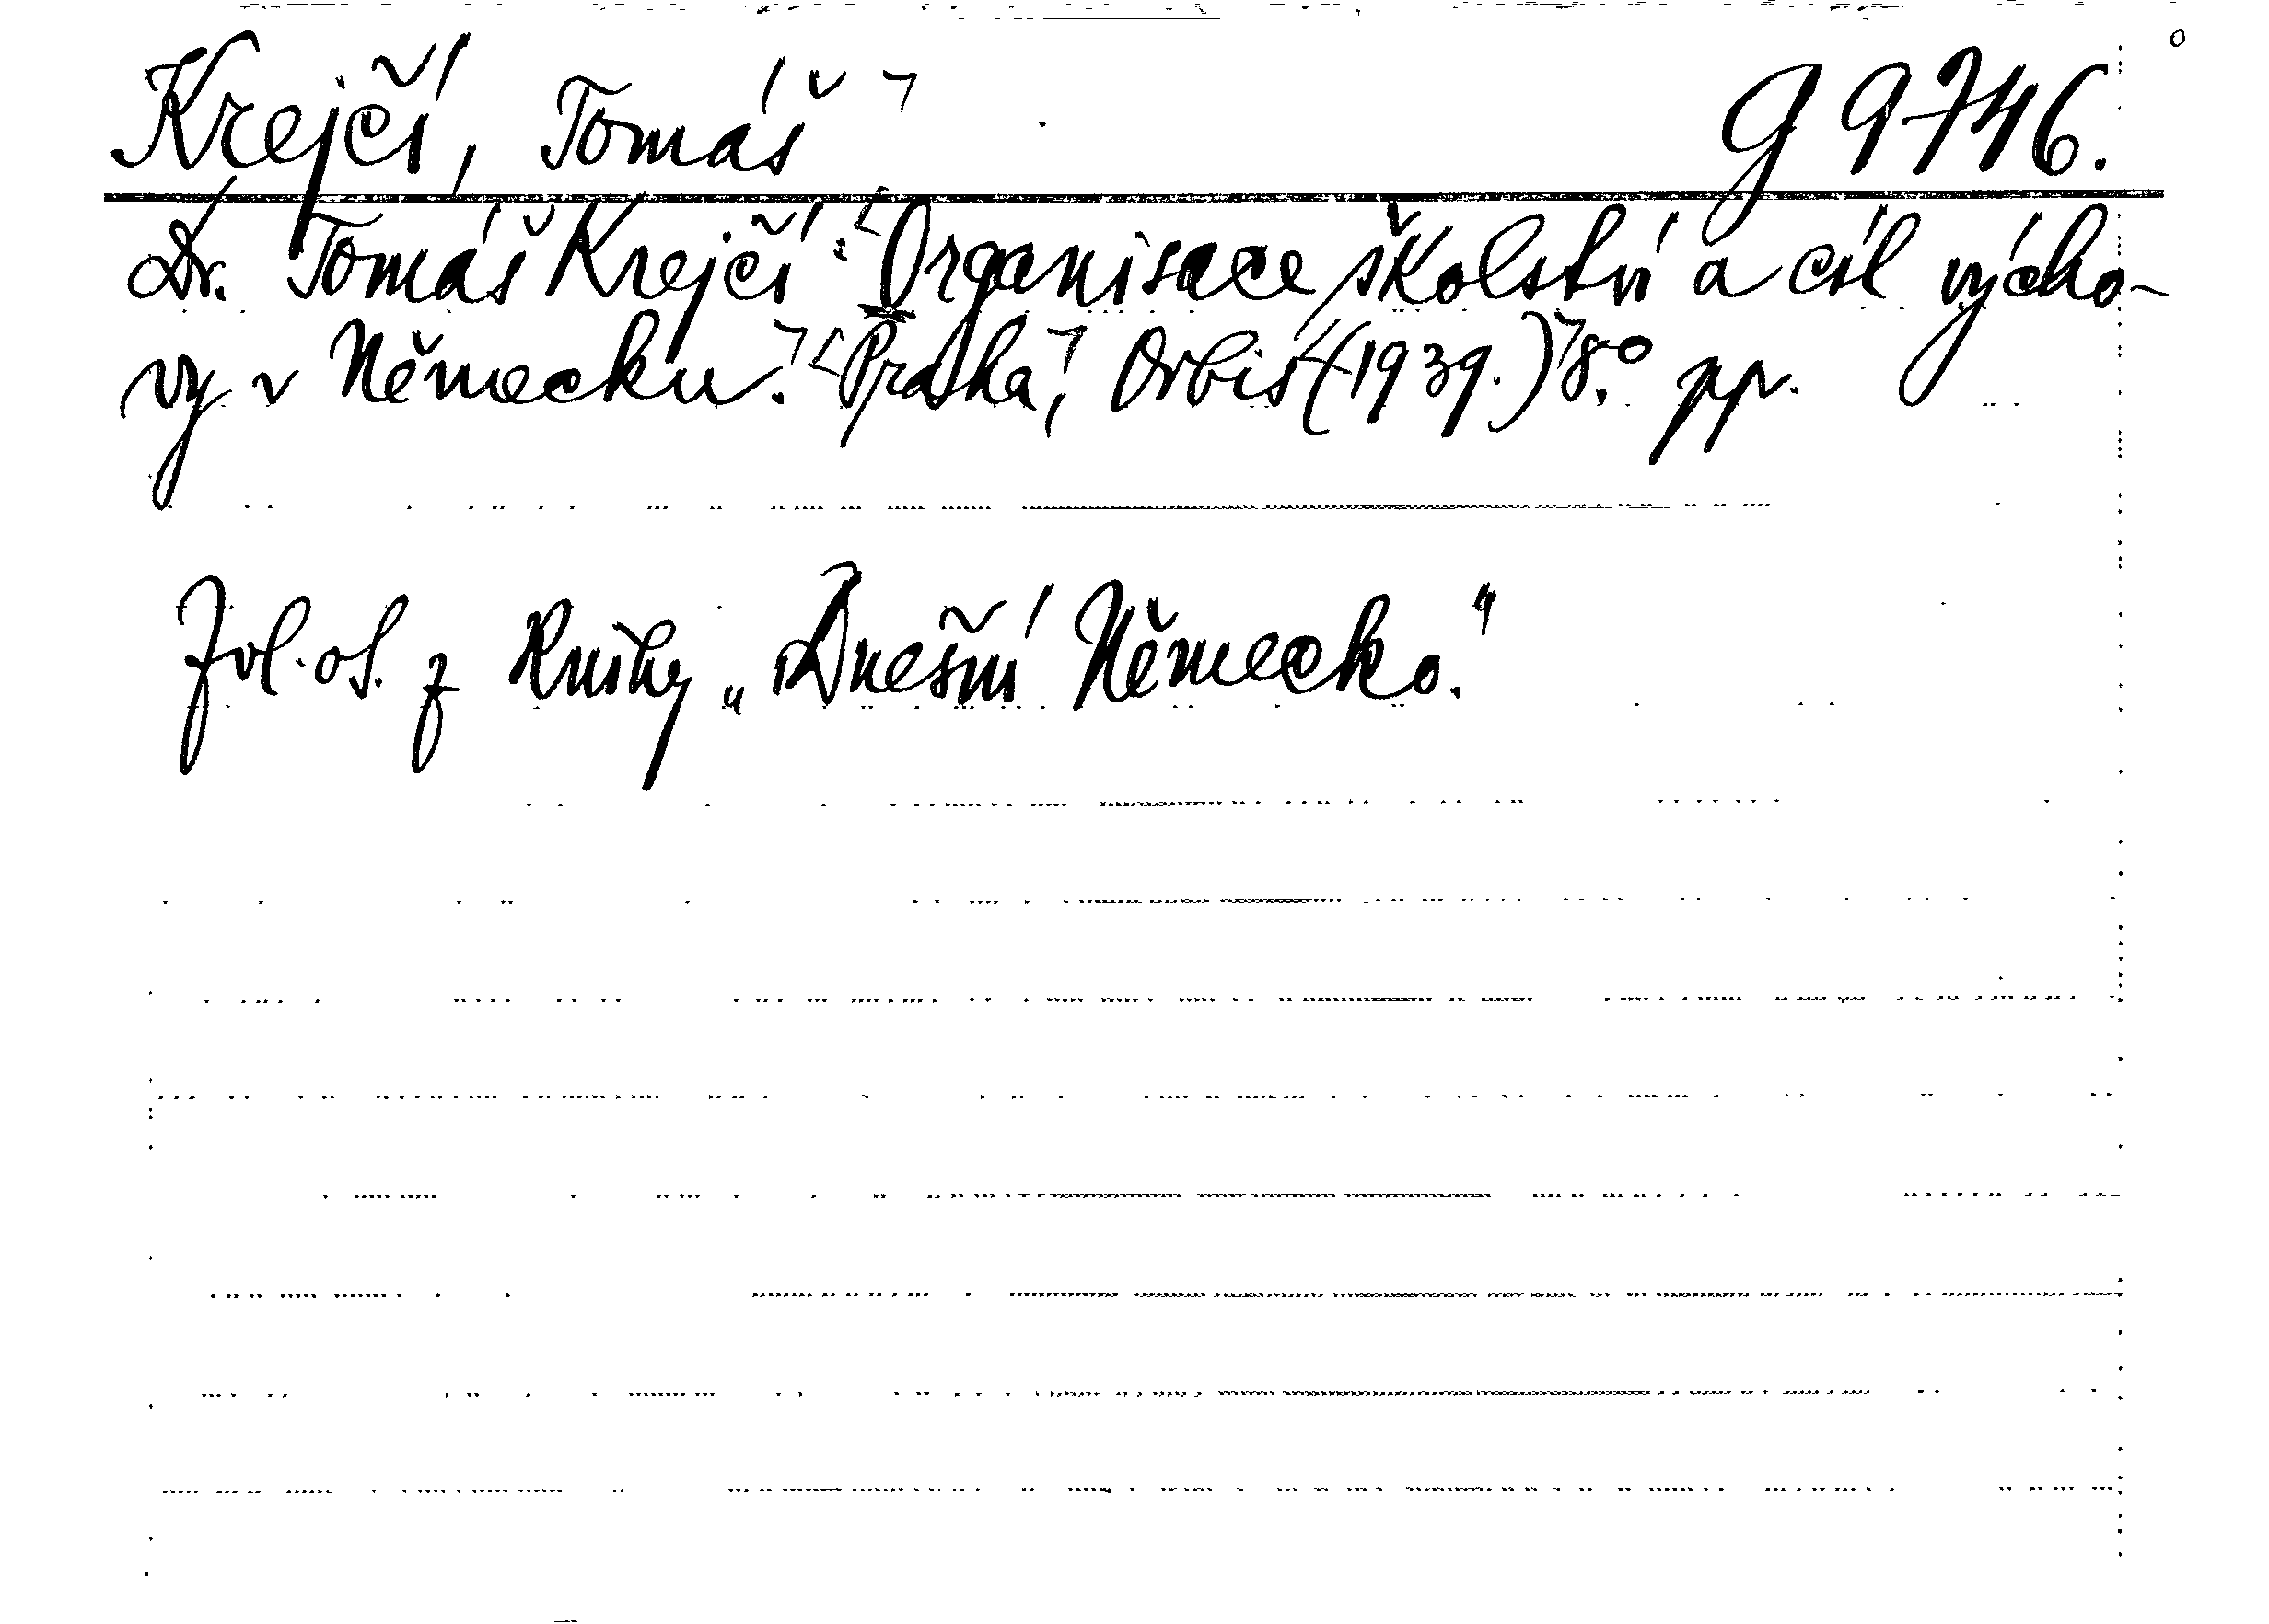 Krejčí, Tomáš G 9746.
Dr. Tomáš Krejčí: Organisace školství a cíl výcho-
vy v Německu. Praha, Orbis (1939.) 8.° pp.
Zvl. ot. z knihy „Dnešní Německo."